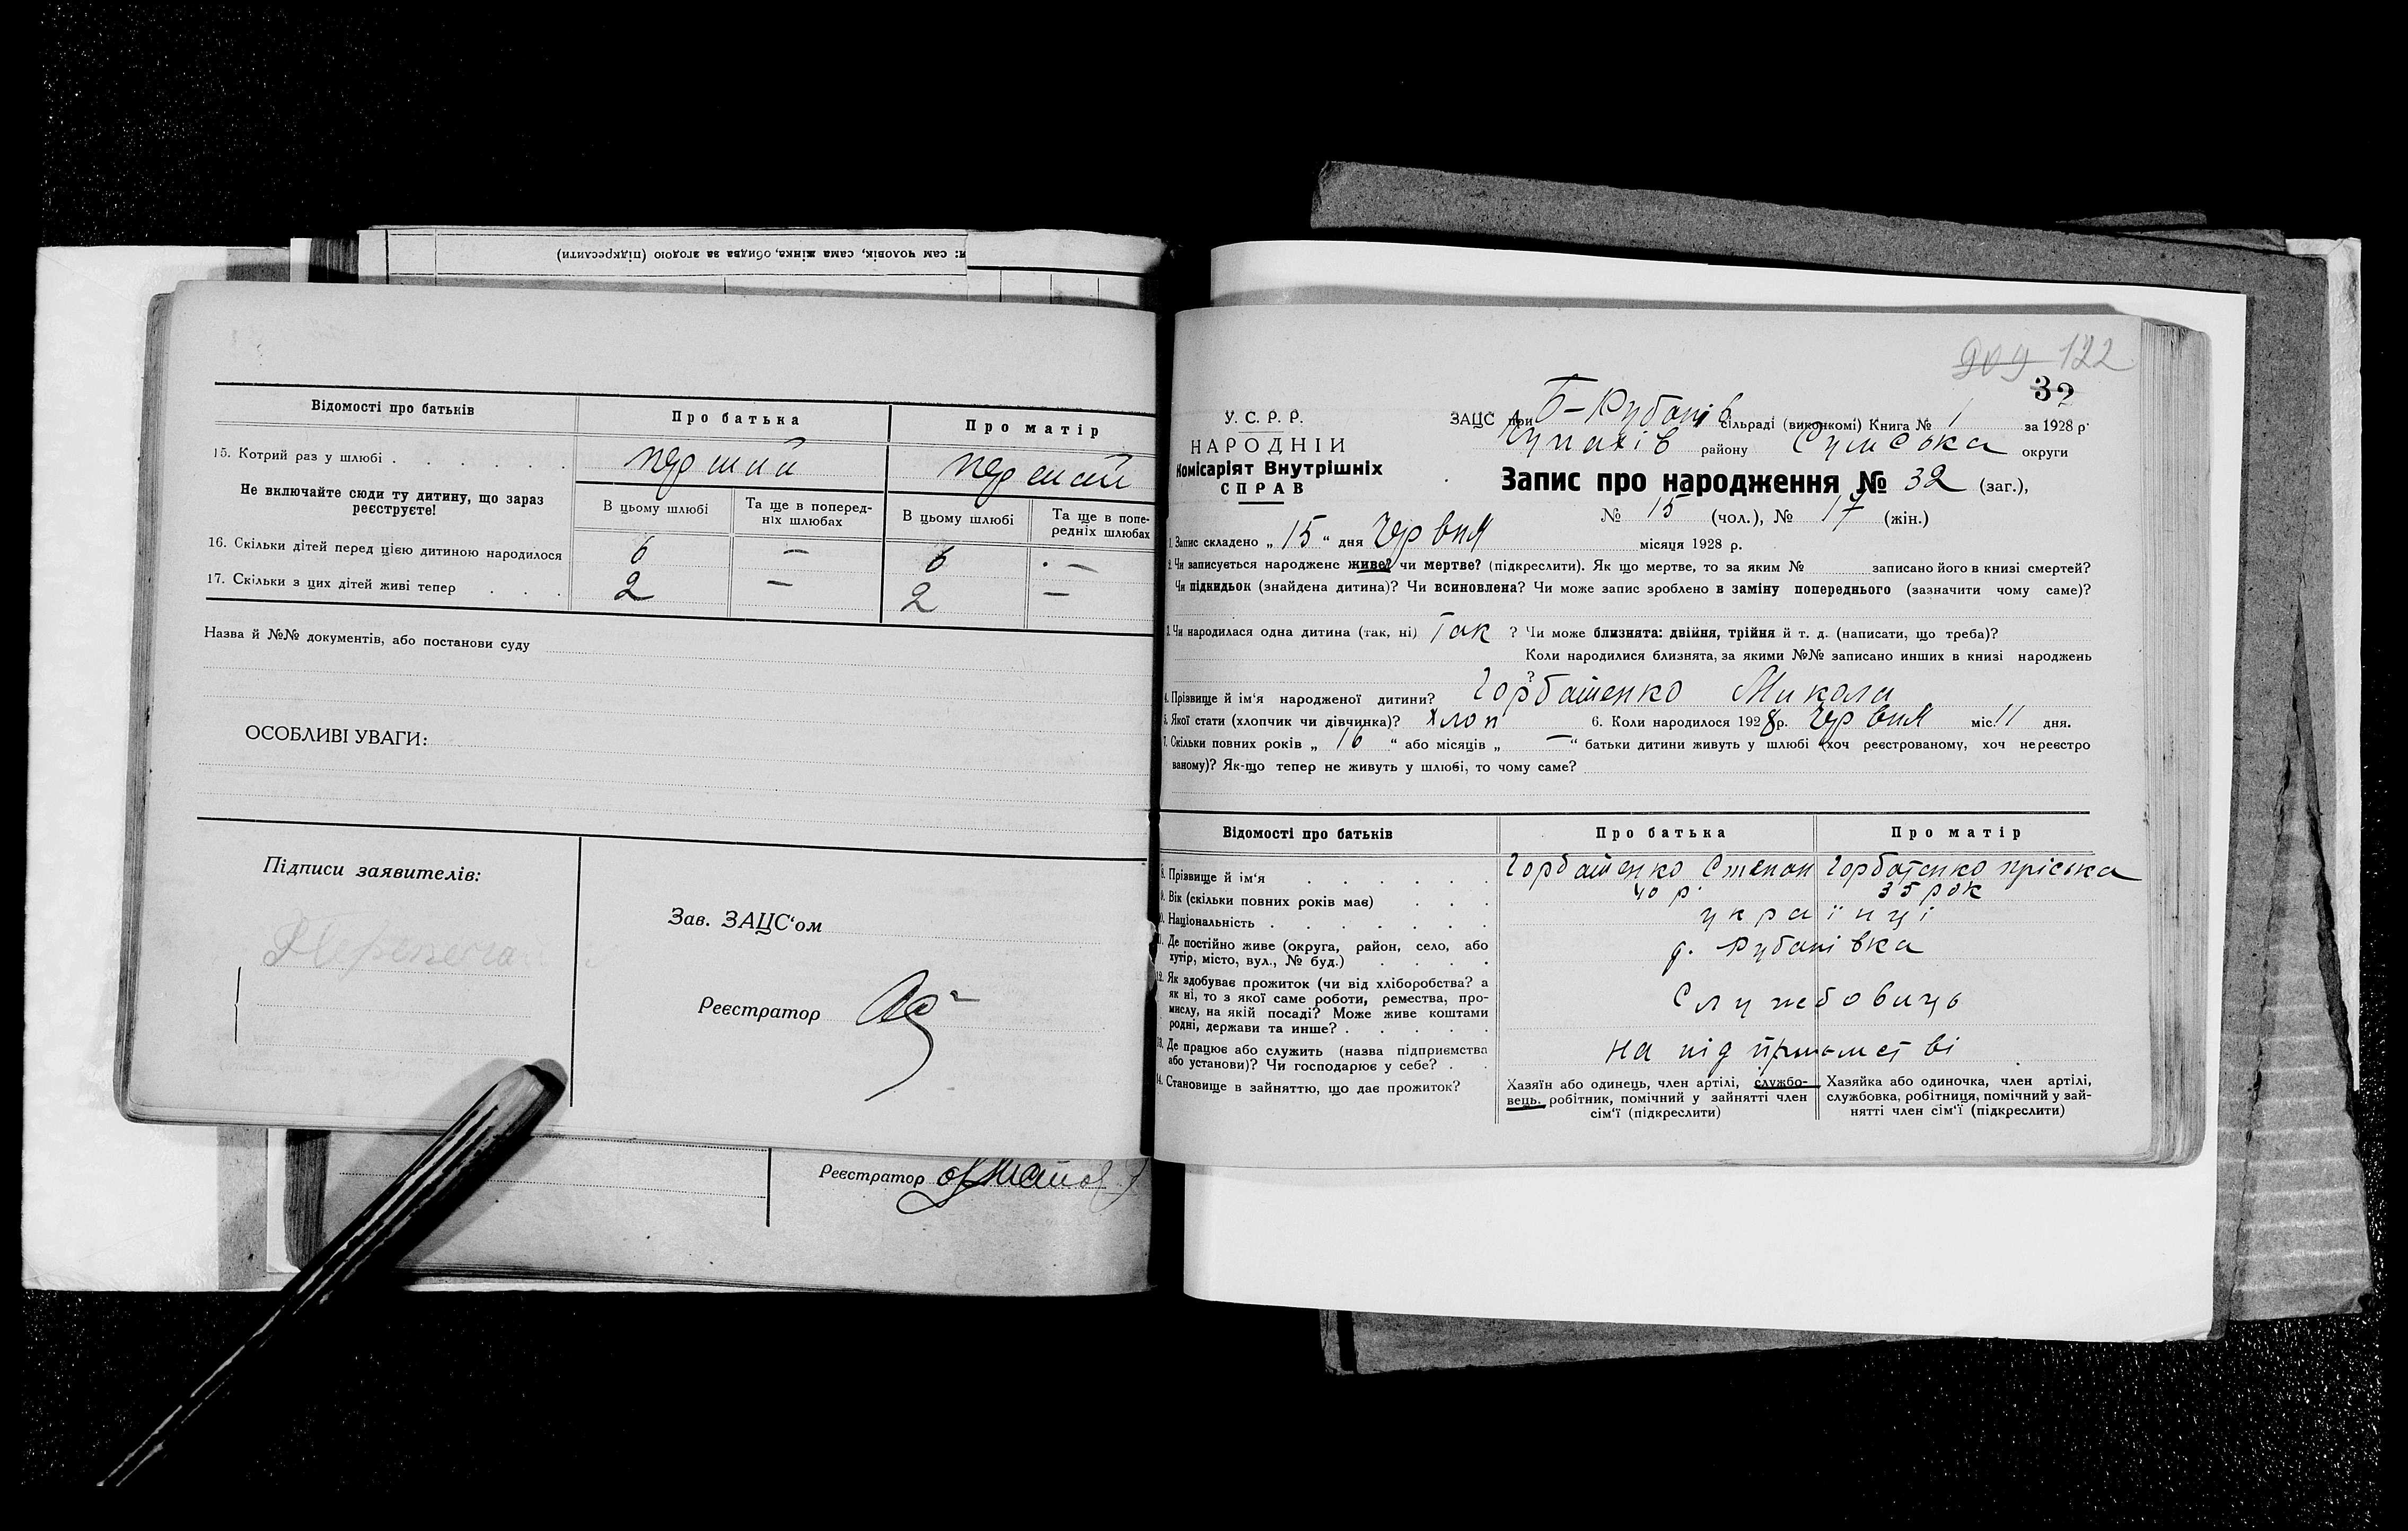 и: сам чоловік, сама жінка, обидва за згодою (підкреслити)
Відомості про батьків
Про батька
Про матір
15. Котрий раз у шлюбі
перший
перший
Не включайте сюди ту дитину, що зараз реєструєте!
В цьому шлюбі
Та ще в поперед-
ніх шлюбах
В цьому шлюбі
Та ще в попе-
редніх шлюбах
16. Скільки дітей перед цією дитиною народилося
6 — 6 —
17. Скільки з цих дітей живі тепер
2 — 2 —
Назва й №№ документів, або постанови суду
ОСОБЛИВІ УВАГИ:
Підписи заявителів:
Зав. ЗАЦС'ом
Реєстратор
Реєстратор
122
32
У. С. Р. Р.
НАРОДНІЙ
Комісаріят Внутрішніх
СПРАВ
ЗАЦС при Б-Рубанів сільраді (виконкомі) Книга № 1 за 1928 р.
району Сумська округи
Запис про народження № 32 (заг.),
№ 15 (чол.), № 17 (жін.)
1. Запис складено „ 15 “ дня Червня місяця 1928 р.
2. Чи записується народжене живе? чи мертве? (підкреслити). Як що мертве, то за яким № записано його в книзі смертей?
Чи підкидьок (знайдена дитина)? Чи всиновлена? Чи може запис зроблено в заміну попереднього (зазначити чому саме)?
3. Чи народилася одна дитина (так, ні) Так ? Чи може близнята: двійня, трійня й т. д. (написати, що треба)?
Коли народилися близнята, за якими №№ записано инших в книзі народжень
?
4. Прізвище й ім'я народженої дитини? Горбатенко Микола
5. Якої стати (хлопчик чи дівчинка)? хлоп 6. Коли народилося 1928 р. Червня міс. 11 дня.
7. Скільки повних років „ 16 “ або місяців „ — “ батьки дитини живуть у шлюбі (хоч реєстрованому, хоч нереєстро
ваному)? Як-що тепер не живуть у шлюбі, то чому саме?
Відомості про батьків
Про батька
Про матір
8. Прізвище й ім'я
Горбатенко Степан
Горбатенко Пріська
9. Вік (скільки повних років має)
40 р.
35 рок
10. Національність
українці
11. Де постійно живе (округа, район, село, або
хутір, місто, вул., № буд.)
д. Рубанівка
12. Як здобуває прожиток (чи від хліборобства? а
як ні, то з якої саме роботи, ремества, про-
мислу, на якій посаді? Може живе коштами
родні, держави та инше?
Службовиць
13. Де працює або служить (назва підприємства
або установи)? Чи господарює у себе?
на підприємстві
14. Становище в зайняттю, що дає прожиток?
Хазяїн або одинець, член артілі, службо-
вець, робітник, помічний у зайнятті член
сім'ї (підкреслити)
Хазяйка або одиночка, член артілі,
службовка, робітниця, помічний у зай-
нятті член сім'ї (підкреслити)